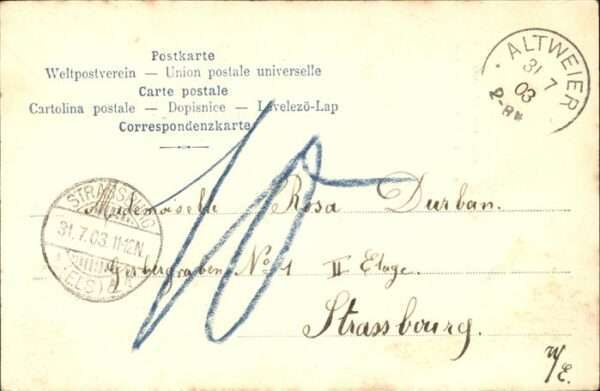 Postkarte
Weltpostverein — Union postale universelle
Carte postale
Cartolina postale — Dopisnice — Levelező-Lap
Correspondenzkarte
ALTWEIER
31 7
03
2-8N
10
STRASSBURG
31.7.03.11-12N
(ELS)
Mademoiselle Rosa Durban.
Gerbergraben No 1 II Etage.
Strassbourg.
i/E.